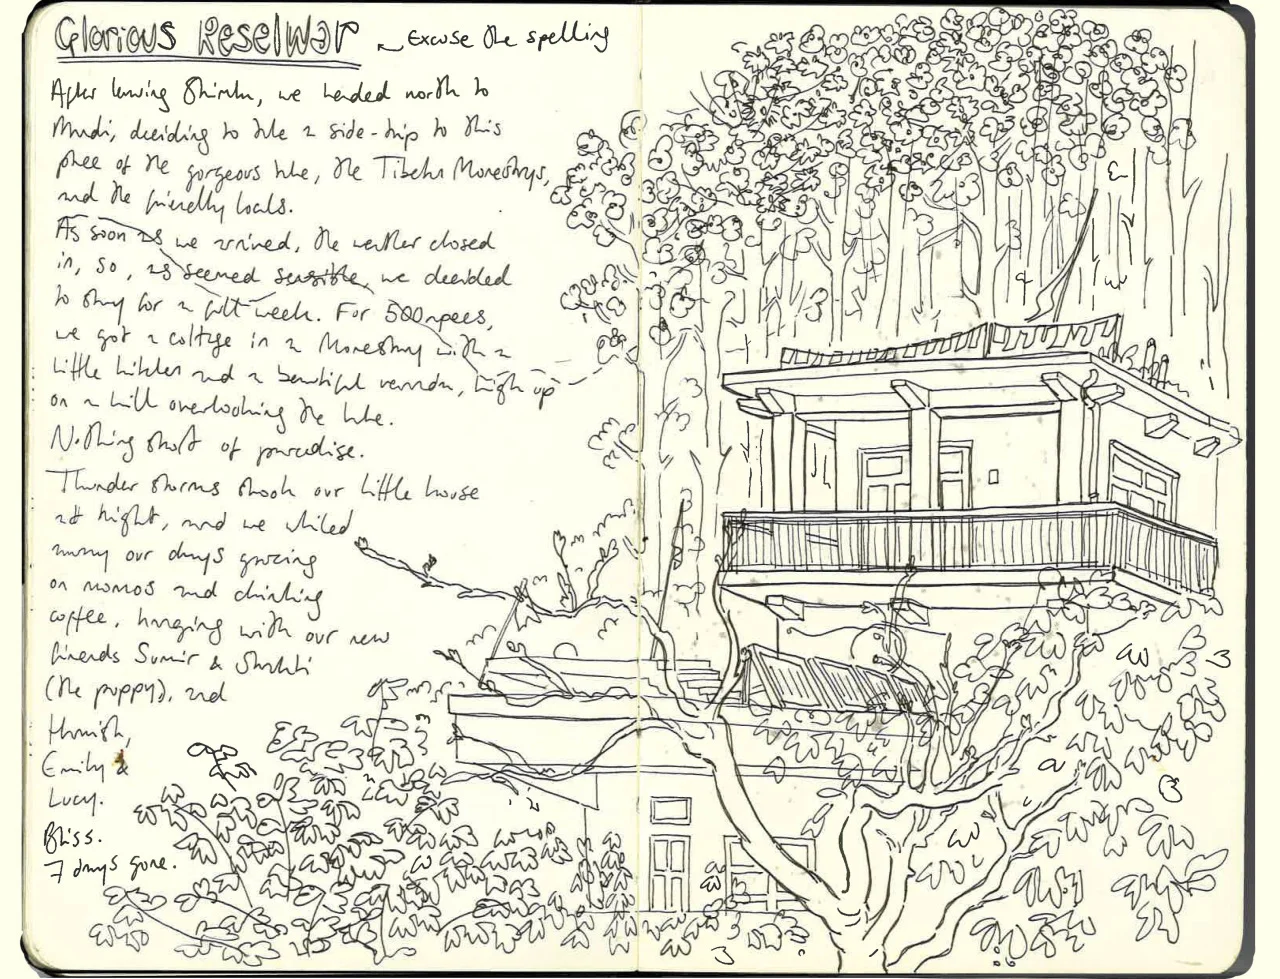 Glorious Reselwar
Excuse the spelling
After leaving Shimla, we headed north to
Mudi, deciding to take a side-trip to this
place of the gorgeous lake, the Tibetan Monestrys,
and the friendly locals.
As soon as we arrived, the weather closed
in, so, as seemed sensible, we decided
to stay for a full week. For 500 rupees,
we got a cottage in a Monestry with a
little kitchen and a beautiful veranda, high up
on a hill overlooking the lake.
Nothing short of paradise.
Thunder storms shook our little house
at night, and we whiled
away our days grazing
on momos and drinking
coffee, hanging with our new
friends Sumir & Shakti
(the puppy), and
Hamish,
Emily &
Lucy.
Bliss.
7 days gone.